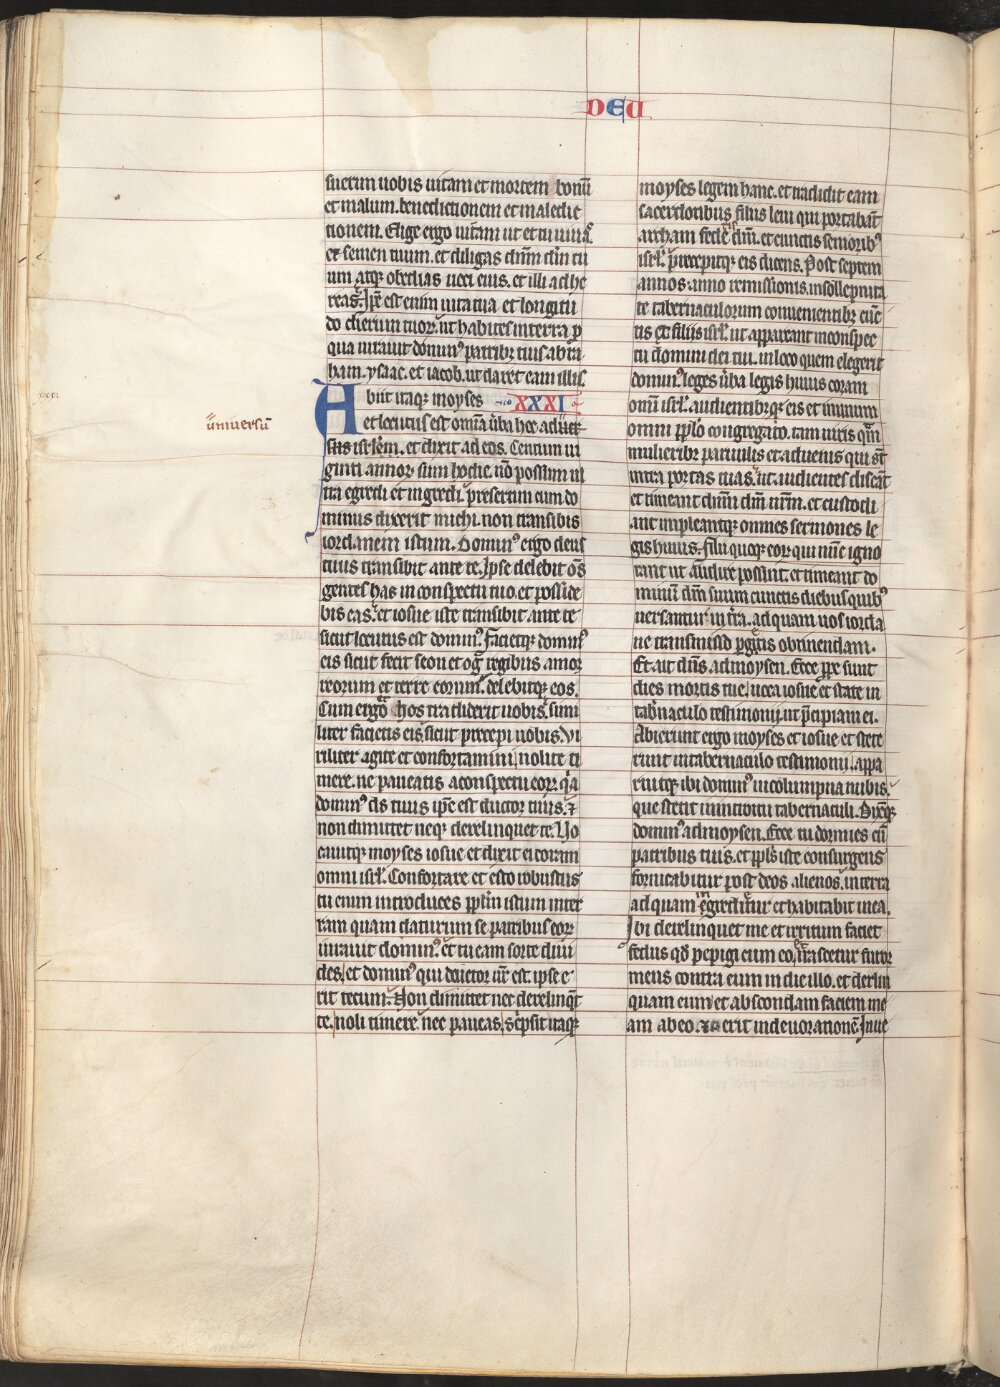 DEU
suerim uobis uitam et mortem bonū
et malum. benedictionem et maledic
tionem. Elige ergo uitam ut et tu uiuas.
et semen tuum. et diligas dn̄m dm̄ tu
um atq; obedias uoci eius. et illi adhe
reas. Ip̄e est enim uita tua et longitu
do dierum tuor̄. ut habites in terra p̄
qua iurauit domin⁹ patrib; tuis abra
ham. ysaac. et iacob. ut daret eam illis.
Abiit itaq; moyses XXXI
et locutus est omīa ūba hec ad uer
sus isrl̄em. et dixit ad eos. Centum ui
ginti annor̄ sum hodie. nō possum ul
tra egredi et ingredi. presertim cum do
minus dixerit michi. non transibis
iordanem istum. Domin⁹ ergo deus
tuus transibit ante te. Ipse delebit om̄s
gentes has in conspectu tuo. et posside
bis eas. et iosue iste transibit ante te
sicut locutus est domin⁹. Facietq; domin⁹
eis sicut fecit seon et og regibus amor
reorum et terre eorum. delebitq; eos.
Cum ergo hos tradiderit uobis. simi
liter facietis eis sicut precepi uobis. Vi
riliter agite et confortamini. nolite ti
mere. ne paueatis a conspectu eor̄. qa
domin⁹ ds̄ tuus ip̄e est ductor tuus. ⁊
non dimittet neq; derelinquet te. Uo
cauitq; moyses iosue et dixit ei coram
omni isrl̄. Confortare et esto robustus
tu enim introduces pp̄lm istum in ter
ram quam daturum se patribus eor̄
iurauit domin⁹. et tu eam sorte diui
des. et domin⁹ qui ductor ūr est. ipse e
rit tecum. Non dimittet nec derelinq̄t
te. noli timere. nec paueas. Sc̄psit itaq;
uniuersū
moyses legem hanc. et tradidit eam
sacerdotibus filiis leui qui portabāt
archam federis dn̄i. et cunctis seniorib⁹
isrl̄. p̄cepitq; eis dicens. Post septem
annos. anno remissionis. in sollepnita
te tabernaculorum conuenientib; cūc
tis ex filiis isrl̄. ut appareant in conspec
tu domini dei tui. in loco quem elegerit
domin⁹. leges ūba legis huius coram
omni isrl̄. audientib;q; eis et in unum
omni pp̄lo congregato. tam uiris q̄m
mulierib; paruulis et aduenis qui sūt
intra portas tuas. ut audientes discāt
et timeant dn̄m dm̄ n̄rm. et custodi
ant impleantq; omnes sermones le
gis huius. filii quoq; eor̄ qui nunc igno
rant ut audire possint. et timeant do
minū dm̄ suum cunctis diebus quib⁹
uersantur in tr̄a. ad quam uos iorda
ne transmisso p̄gitis obtinendam.
Et ait dn̄s ad moysen. Ecce ꝓpe sunt
dies mortis tue. uoca iosue et state in
tab̄naculo testimonij. ut p̄cipiam ei.
Abierunt ergo moyses et iosue et stete
runt in tabernaculo testimonii. appa
ruitq; ibi domin⁹ in columpna nubis.
que stetit in introitu tabernaculi. Dixitq;
domin⁹ ad moysen. Ecce tu dormies cū
patribus tuis. et pp̄ls iste consurgens
fornicabitur post deos alienos. in terra
ad quam ingreditur et habitabit in ea.
Ibi derelinquet me et irritum faciet
fedus qd̄ pepigi cum eo. et irascetur furor
meus contra eum in die illo. et derelin
quam eum et abscondam faciem me
am ab eo. et erit in deuorationē. Inue